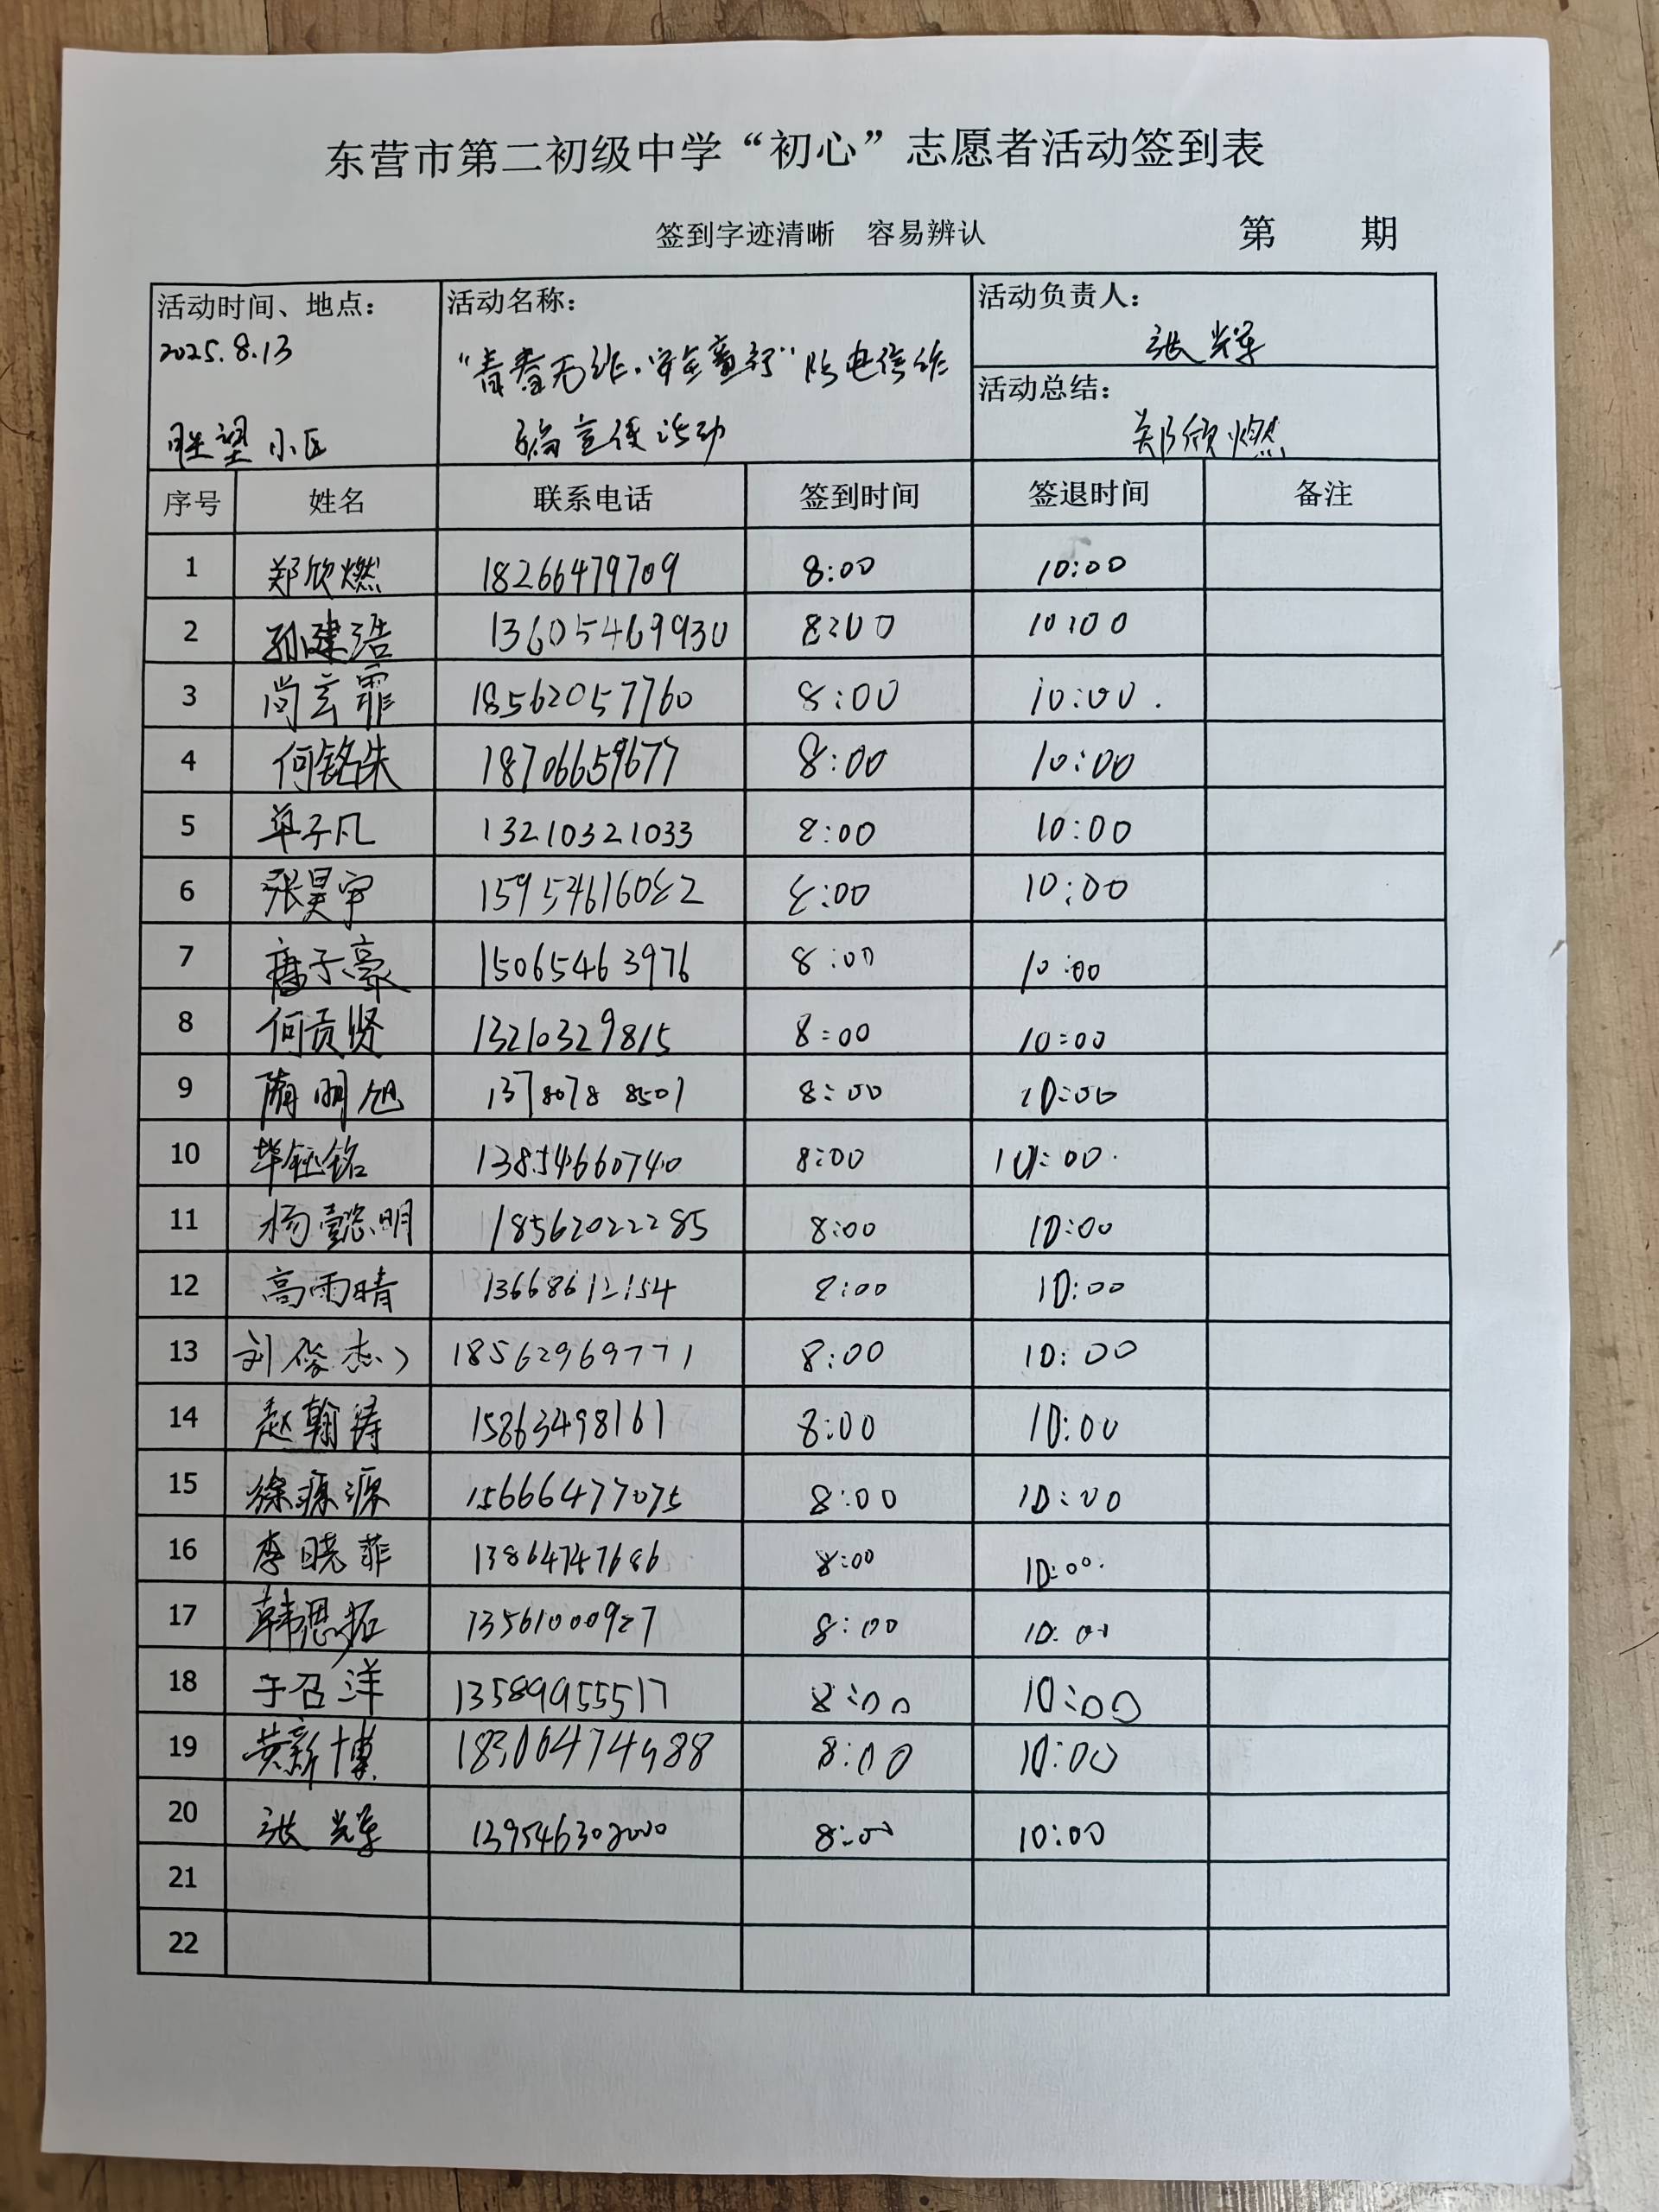 东营市第二初级中学“初心”志愿者活动签到表
签到字迹清晰 容易辨认 第 期
活动时间、地点： 活动名称： 活动负责人：
2025.8.13 “青春无诈，安全童行”防电信诈 张光军
活动总结：
胜望小区 骗宣传活动 郑欣燃
序号 姓名 联系电话 签到时间 签退时间 备注
1 郑欣燃 18266479709 8:00 10:00
2 孙建浩 13605469930 8:00 10:00
3 尚玄霏 18562057760 8:00 10:00.
4 何铭朱 18706659677 8:00 10:00
5 单子凡 13210321033 8:00 10:00
6 张昊宇 15954616082 8:00 10:00
7 子豪 15065463976 8:00 10:00
8 何贡贤 13210329815 8:00 10:00
9 隋明旭 13780788501 8:00 10:00
10 毕钰铭 13854660740 8:00 10:00.
11 杨懿明 18562022285 8:00 10:00
12 高雨晴 13668612154 8:00 10:00
13 刘俊杰 18562969771 8:00 10:00
14 赵翰涛 15863498161 8:00 10:00
15 徐源源 15666477075 8:00 10:00
16 李晓菲 13864747686 8:00 10:00.
17 韩恩拓 13561000927 8:00 10:00
18 于召洋 13589955517 8:00 10:00
19 黄新博 18306474988 8:00 10:00
20 张光军 8:00 10:00
21
22